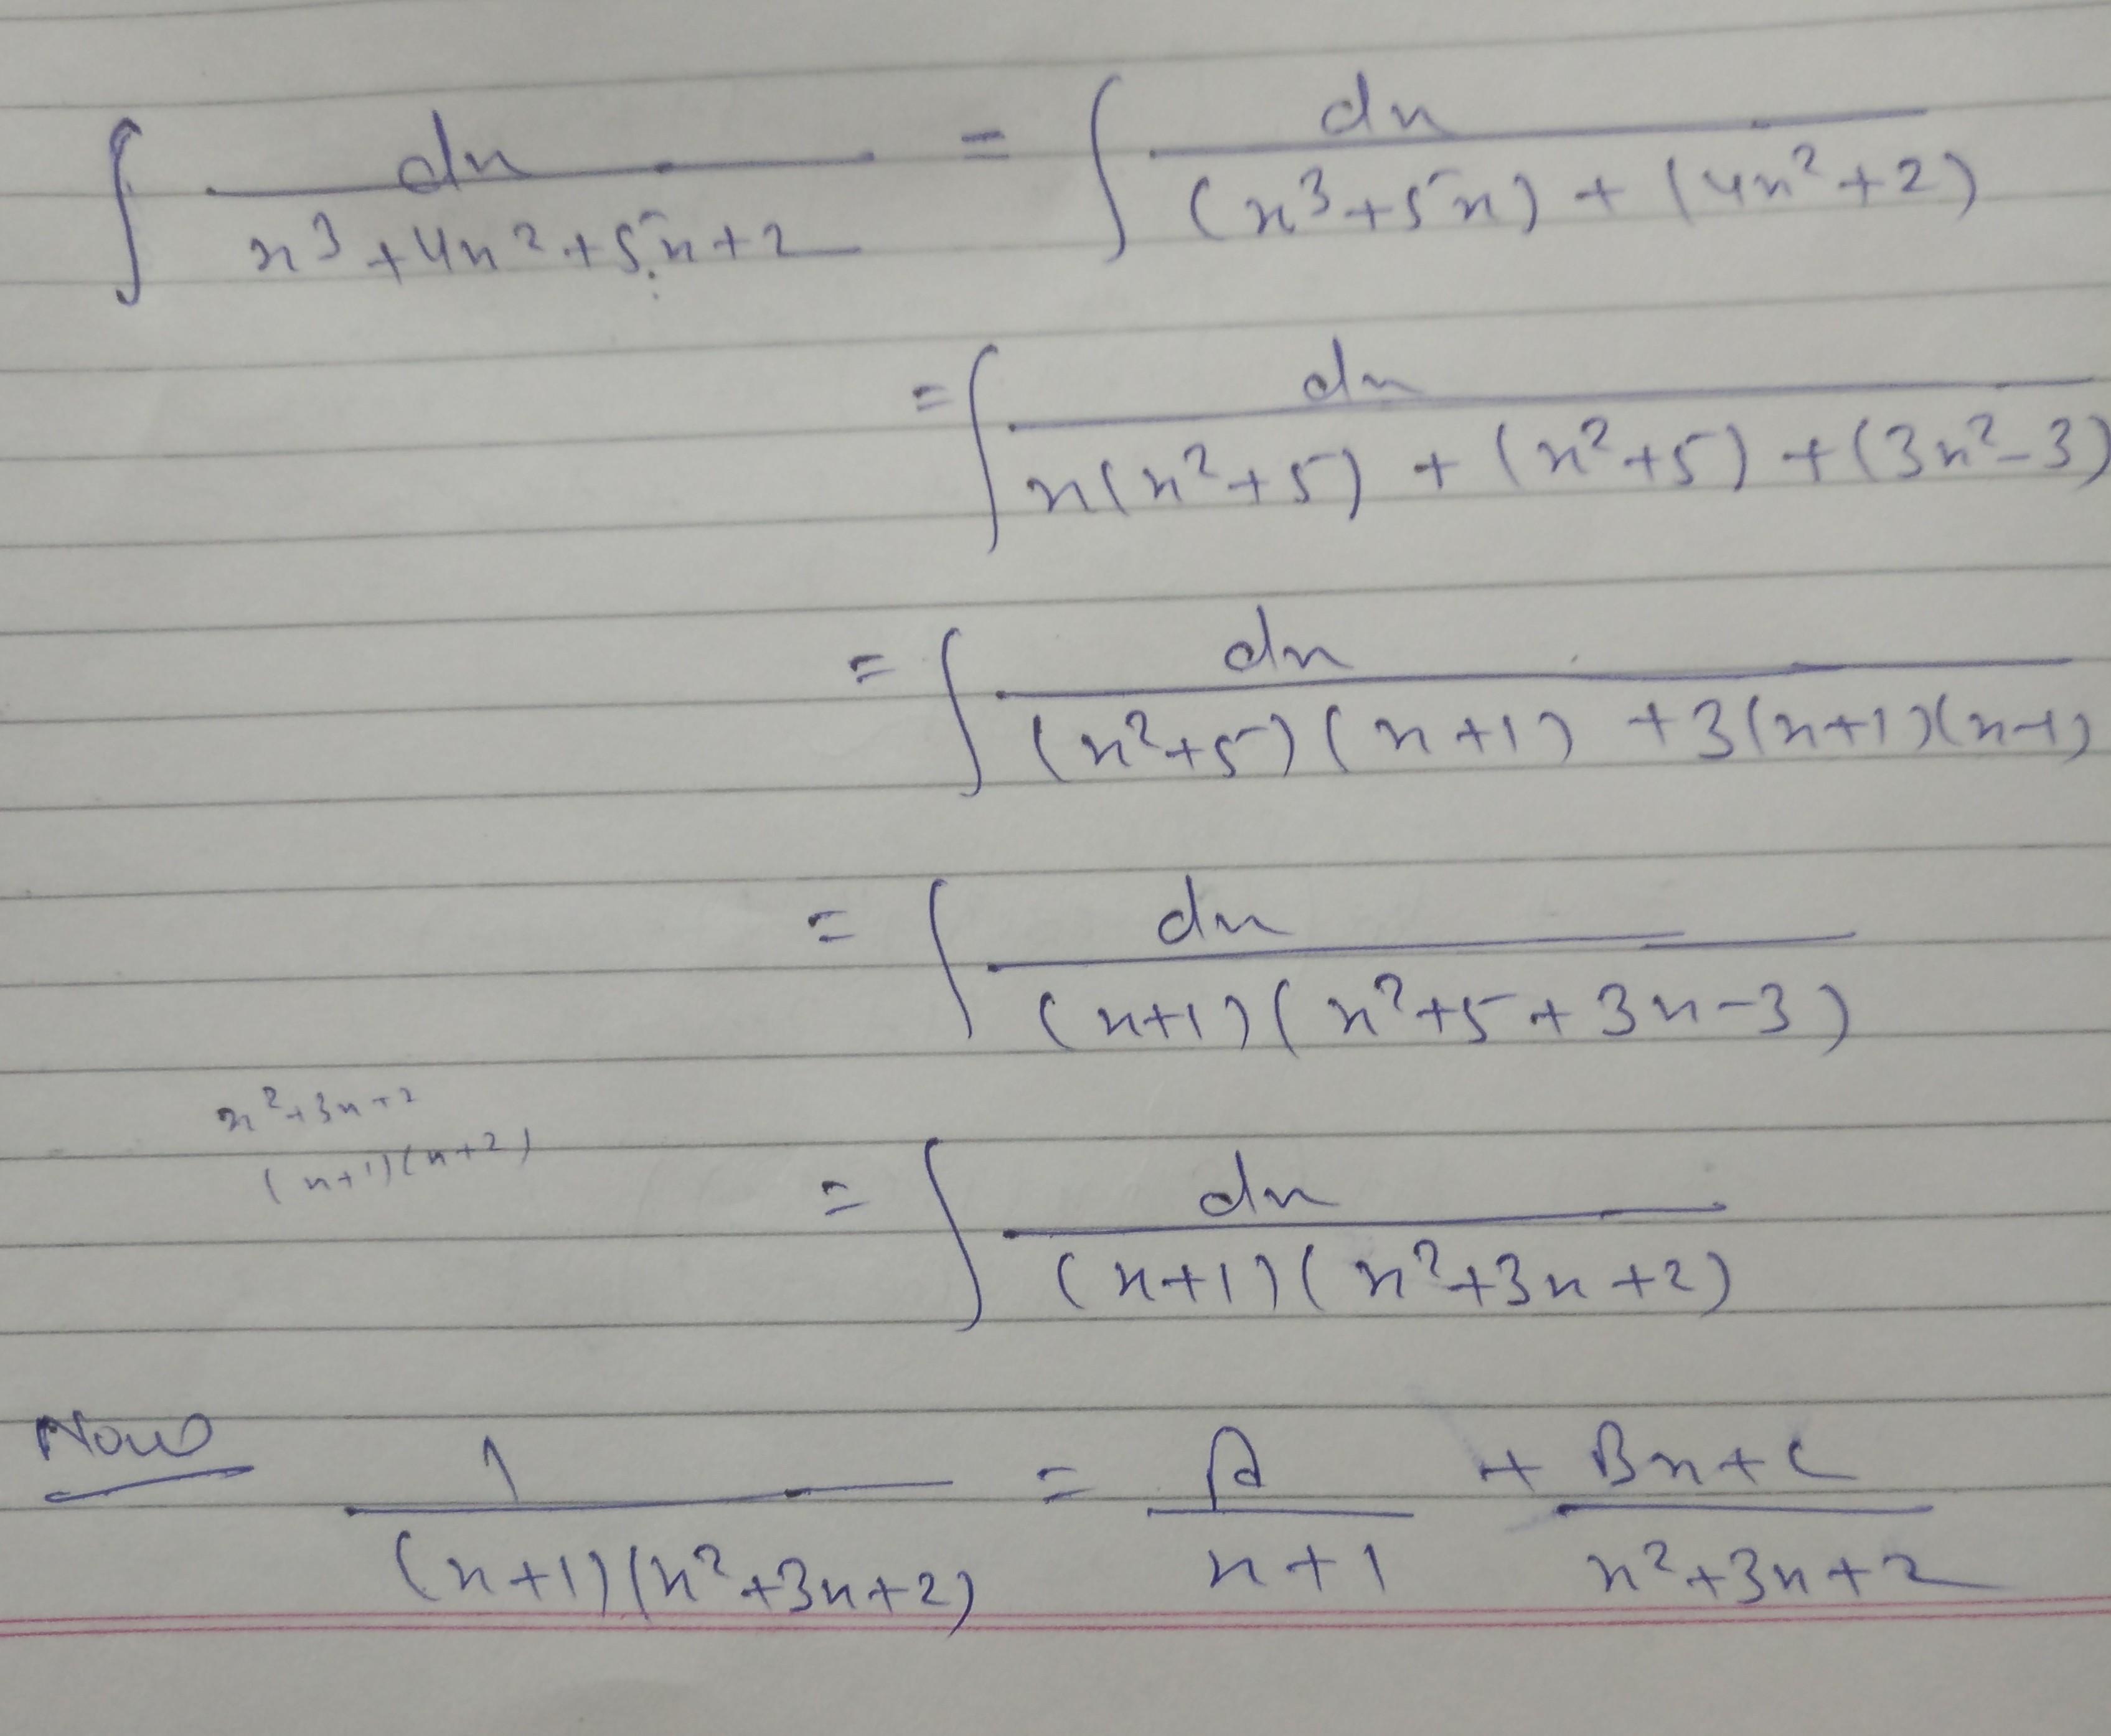 ∫ dx / (x³+4x²+5x+2) = ∫ dx / ((x³+5x) + (4x²+2))
= ∫ dx / (x(x²+5) + (x²+5) + (3x²-3))
= ∫ dx / ((x²+5)(x+1) + 3(x+1)(x-1))
= ∫ dx / ((x+1)(x²+5+3x-3))
x²+3x+2
(x+1)(x+2)
= ∫ dx / ((x+1)(x²+3x+2))
Now 1 / ((x+1)(x²+3x+2)) = A / (x+1) + (Bx+C) / (x²+3x+2)